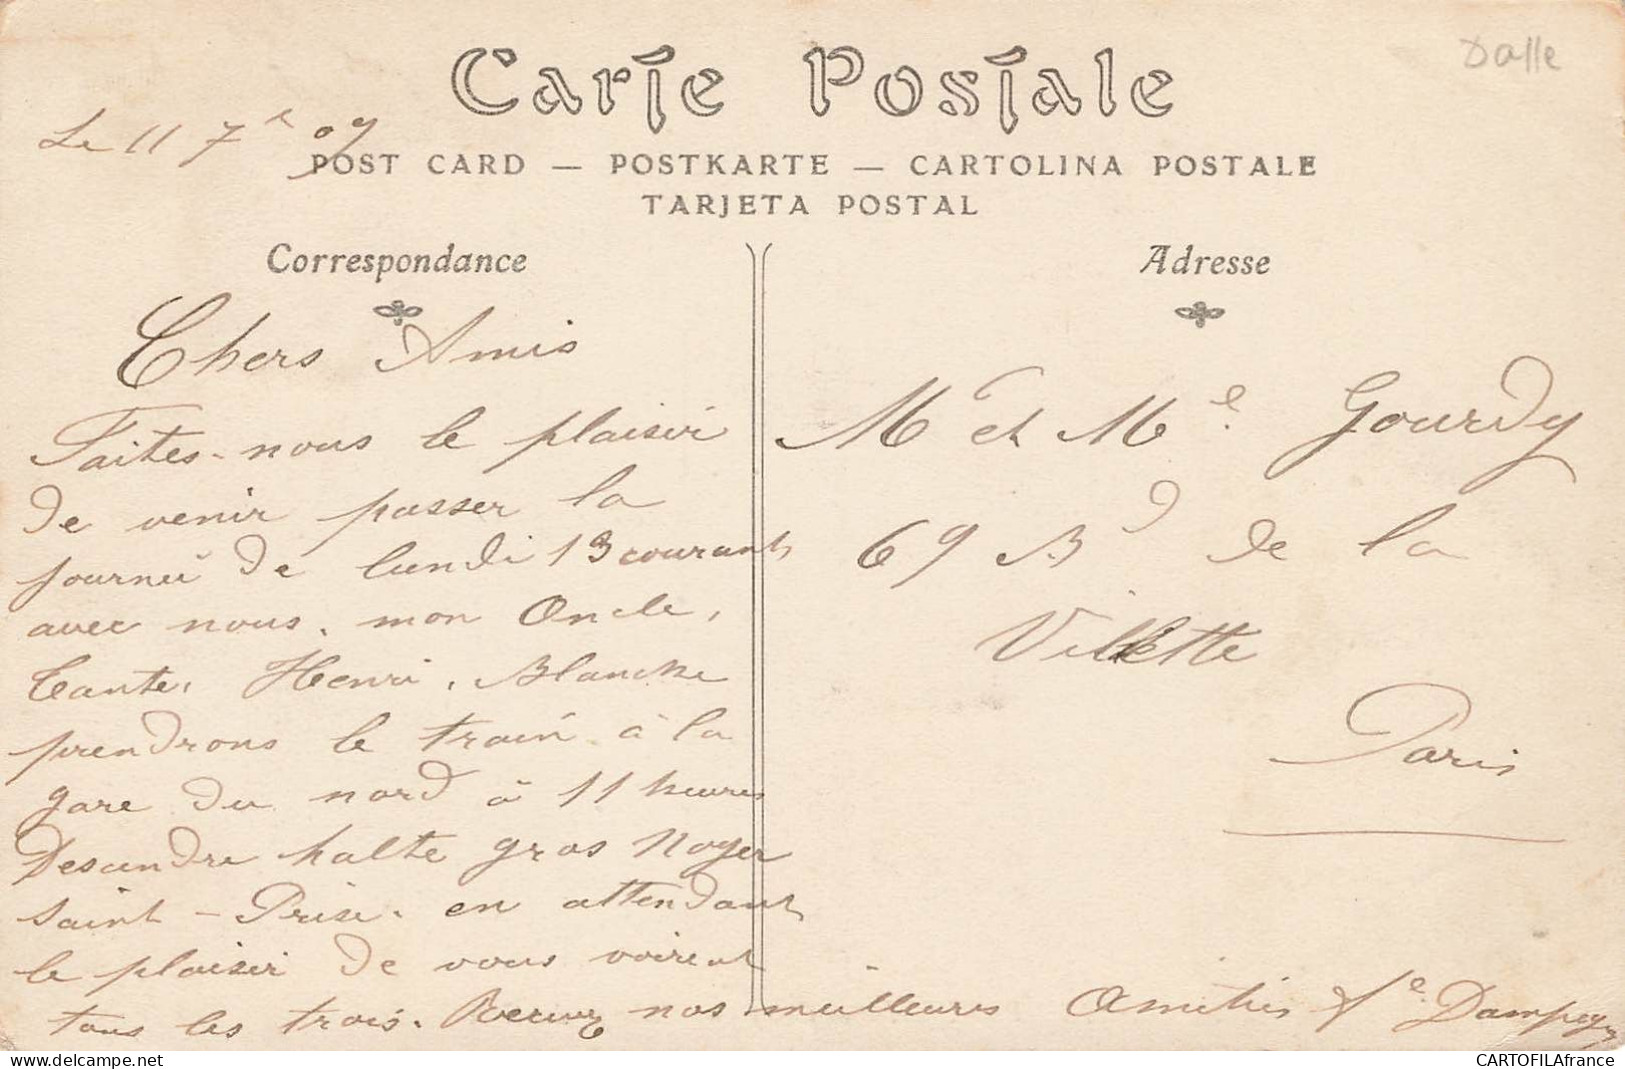 Dalle
Carte Postale
Le 11 7e 09
POST CARD — POSTKARTE — CARTOLINA POSTALE
TARJETA POSTAL
Correspondance
Chers Amis
Faites-nous le plaisir
de venir passer la
journeé de lundi 13 courant
avec nous. mon Oncle,
tante, Henri, Blanche
prendrons le train à la
gare du nord à 11 heures
Desendre halte gros Noyer
Saint-Prise. en attendant
le plaisir de vous voirent
tous les trois. Recevez nos meilleures Amitiés
Adresse
M et Me. Gourdy
69 Bd de la
Villette
Paris
CARTOFILAfrance